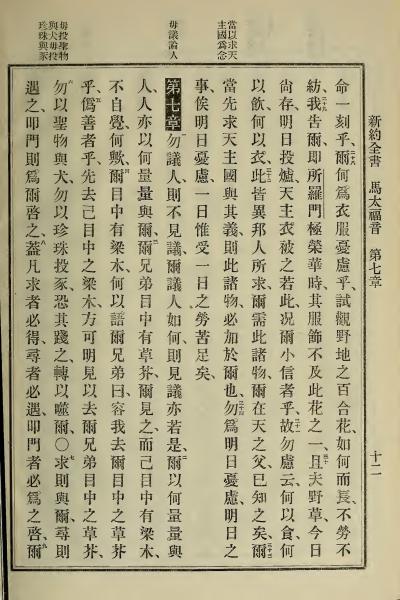 新約全書 馬太福音 第七章 十二
當以求天主國爲念
毋議論人
毋投聖物與犬毋投珍珠與豕
命一刻乎二十八爾何爲衣服憂慮乎試觀野地之百合花如何而長不勞不
紡二十九我吿爾卽所羅門極榮華時其服飾不及此花之一三十且夫野草今日
尙存明日投爐天主衣被之若此况爾小信者乎三十一故勿慮云何以食何
以飲何以衣三十二此皆異邦人所求爾需此諸物爾在天之父已知之矣三十三爾
當先求天主國與其義則此諸物必加於爾也三十四勿爲明日憂慮明日之
事俟明日憂慮一日惟受一日之勞苦足矣
第七章一勿議人則不見議二爾議人如何則見議亦若是爾以何量量與
人人亦以何量量與爾三爾兄弟目中有草芥爾見之而己目中有梁木
不自覺何歟四爾目中有梁木何以語爾兄弟曰容我去爾目中之草芥
乎五僞善者乎先去己目中之梁木方可明見以去爾兄弟目中之草芥
六勿以聖物與犬勿以珍珠投豕恐其踐之轉以噬爾○七求則與爾尋則
遇之叩門則爲爾啓之八蓋凡求者必得尋者必遇叩門者必爲之啓九爾